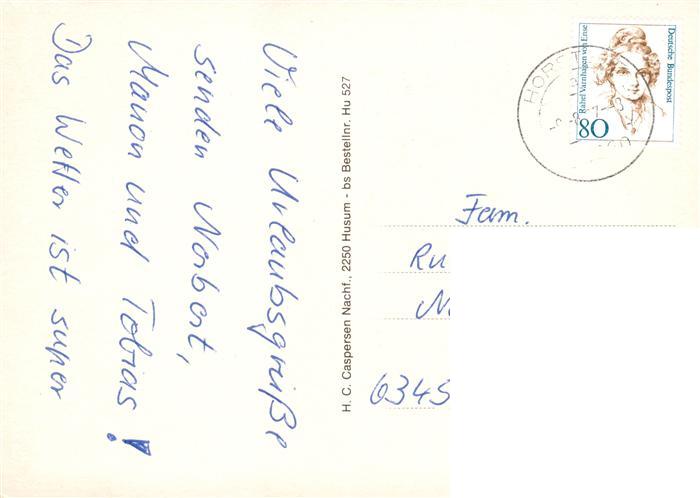 Viele Urlaubsgrüße
senden Norbert,
Manon und Tobias!
Das Wetter ist super
H. C. Caspersen Nachf., 2250 Husum - bs Bestellnr. Hu 527
Deutsche Bundespost
Rahel Varnhagen von Ense
80
Fam.
6345